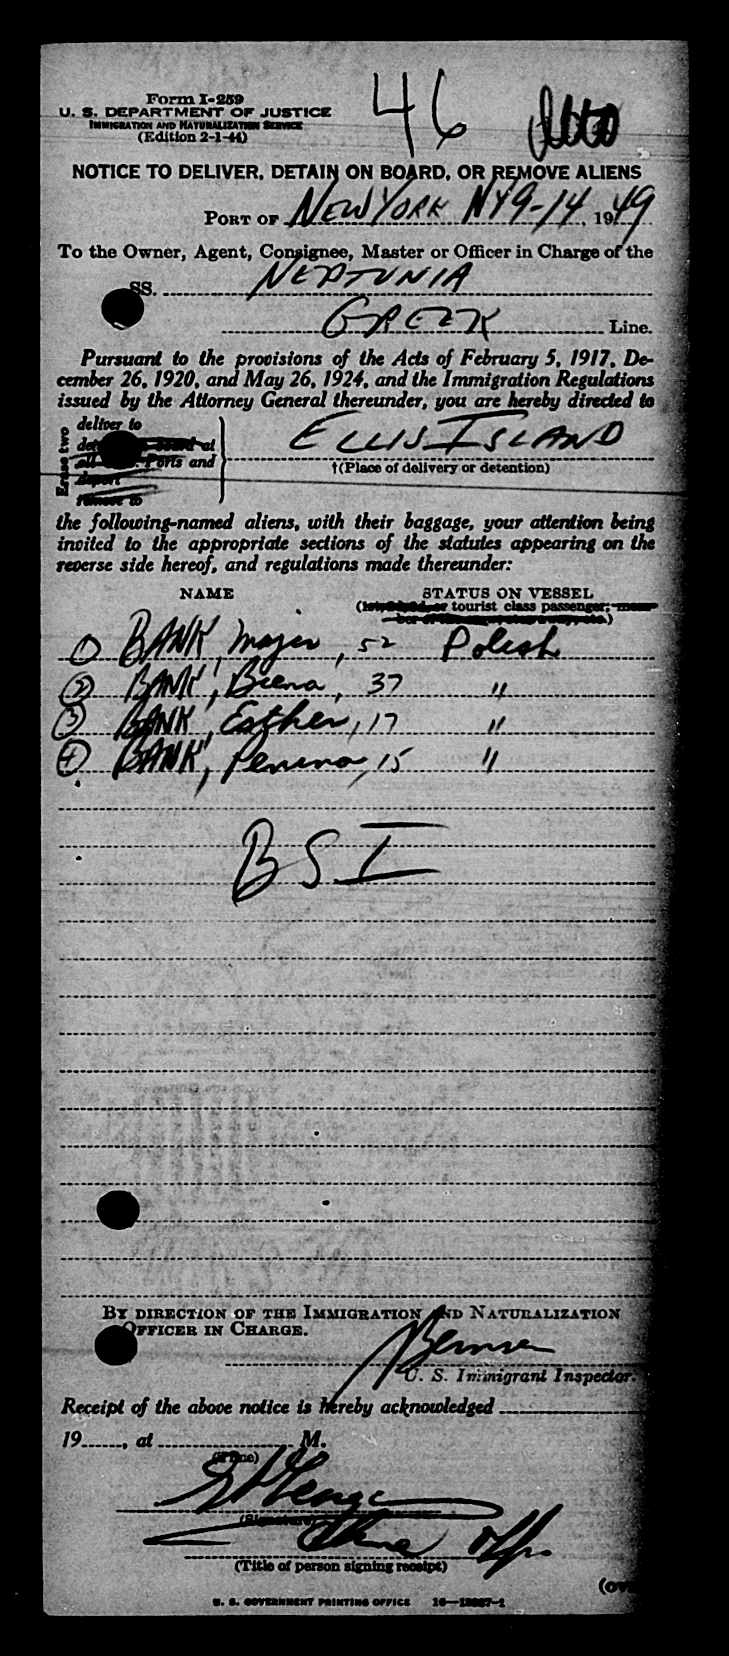 46
Form I-259
U. S. DEPARTMENT OF JUSTICE
IMMIGRATION AND NATURALIZATION SERVICE
(Edition 2-1-44)
NOTICE TO DELIVER, DETAIN ON BOARD, OR REMOVE ALIENS
PORT OF NEW YORK NY 9-14, 1949
To the Owner, Agent, Consignee, Master or Officer in Charge of the
SS. NEPTUNIA
GREEK Line.
Pursuant to the provisions of the Acts of February 5, 1917, De-
cember 26, 1920, and May 26, 1924, and the Immigration Regulations
issued by the Attorney General thereunder, you are hereby directed to
Erase two
deliver to
at
Ports and
deport
remove to
ELLIS ISLAND
†(Place of delivery or detention)
the following-named aliens, with their baggage, your attention being
invited to the appropriate sections of the statutes appearing on the
reverse side hereof, and regulations made thereunder:
NAME STATUS ON VESSEL
tourist class passenger;
① BANK, Majer, 52 Polish
② BANK, Brena, 37 "
③ BANK, Esther, 17 "
④ BANK, Penina, 15 "
BSI
BY DIRECTION OF THE IMMIGRATION AND NATURALIZATION
OFFICER IN CHARGE.
U. S. Immigrant Inspector.
Receipt of the above notice is hereby acknowledged
19 , at M.
(Time)
(Signature)
(Title of person signing receipt)
U. S. GOVERNMENT PRINTING OFFICE